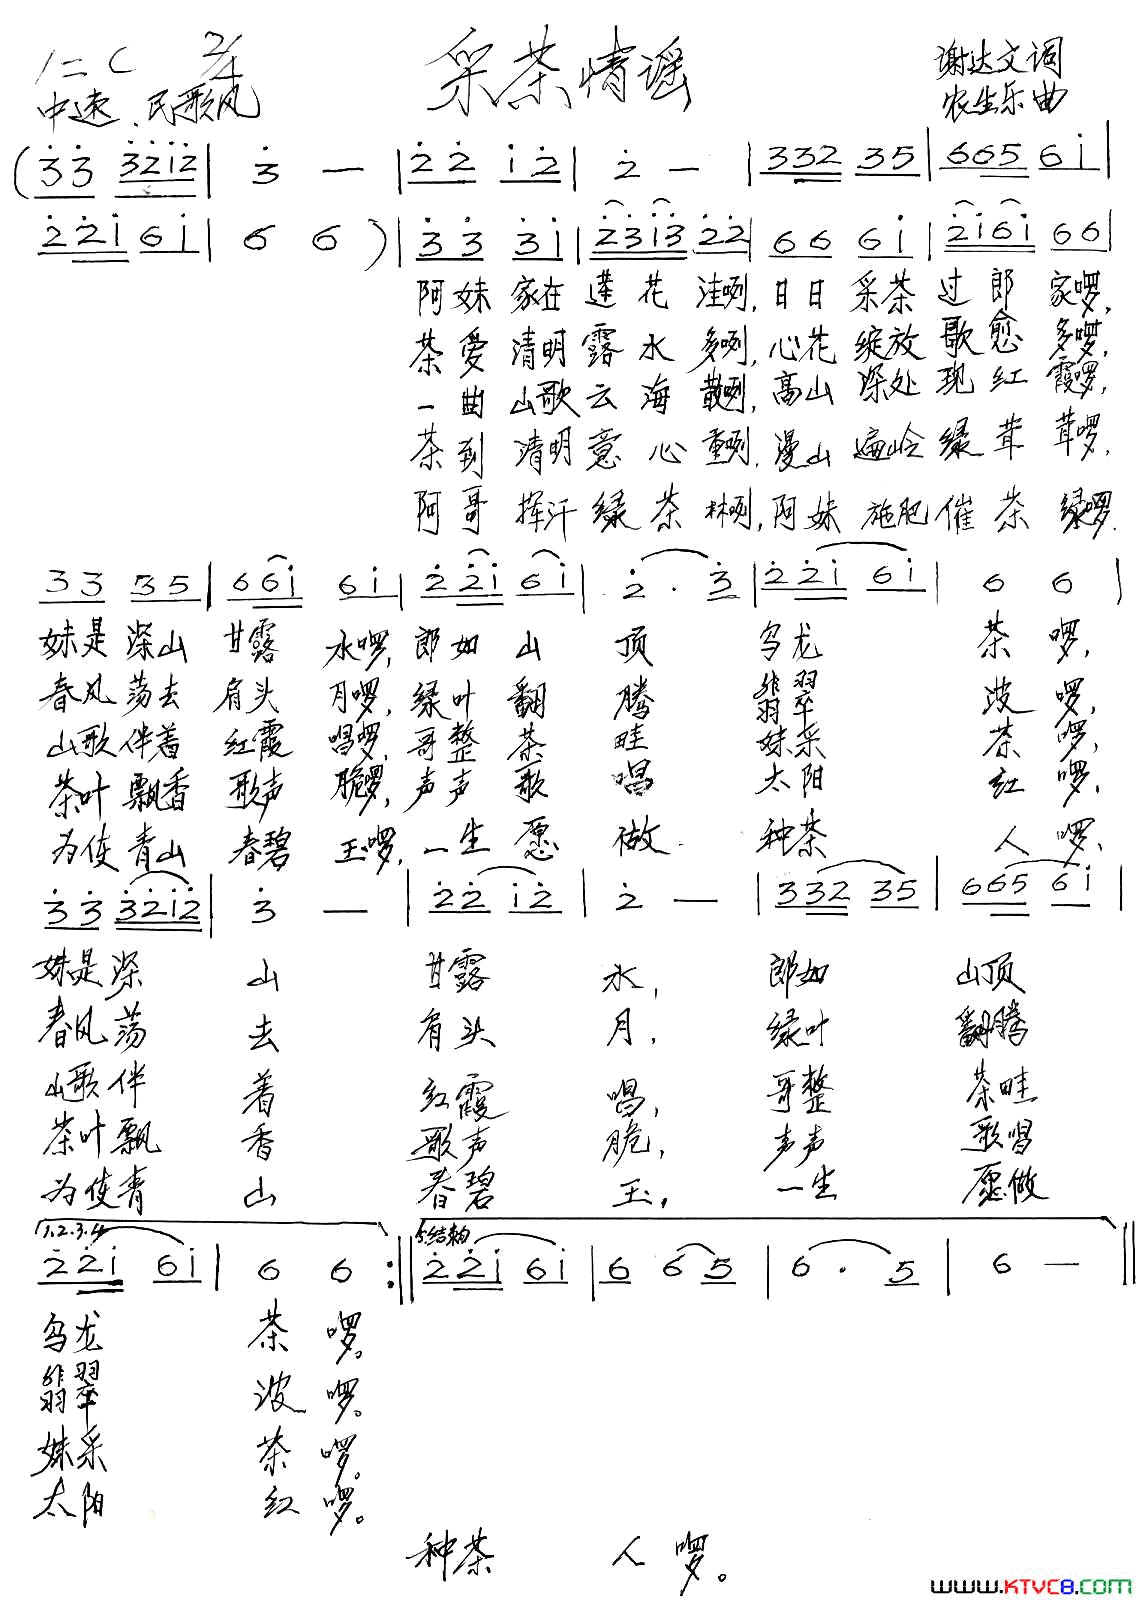 采茶情谣
1=C 2/4
谢达文词
中速、民歌风
农生乐曲
(3̇3̇ 3̇2̇1̇2̇ | 3̇ — | 2̇2̇ 1̇2̇ | 2̇ — | 332 35 | 665 61̇ |
2̇2̇1̇ 61̇ | 6 6 ) | 3̇3̇ 3̇1̇ | 2̇3̇1̇3̇ 2̇2̇ | 66 61̇ | 2̇1̇61̇ 66 |
阿妹 家在 莲花 洼咧, 日日 采茶 过郎 家啰,
茶爱 清明 露水 多咧, 心花 绽放 歌愈 多啰,
一曲 山歌 云海 散咧, 高山 深处 现红 霞啰,
茶到 清明 意心 重咧, 漫山 遍岭 绿茸 茸啰,
阿哥 挥汗 绿茶 林咧, 阿妹 施肥 催茶 绿啰.
33 35 | 661̇ 61̇ | 2̇2̇1̇ 61̇ | 2̇ · 3̇ | 2̇2̇1̇ 61̇ | 6 6 |
妹是 深山 甘露 水啰, 郎如 山 顶 乌龙 茶 啰,
春风 荡去 肩头 月啰, 绿叶 翻 腾 翡翠 波 啰,
山歌 伴着 红霞 唱啰, 哥整 茶 畦 妹采 茶 啰,
茶叶 飘香 歌声 脆啰, 声声 歌 唱 太阳 红 啰,
为使 青山 春碧 玉啰, 一生 愿 做 种茶 人 啰、
3̇3̇ 3̇2̇1̇2̇ | 3̇ — | 2̇2̇ 1̇2̇ | 2̇ — | 332 35 | 665 61̇
妹是深 山 甘露 水, 郎如 山顶
春风荡 去 肩头 月, 绿叶 翻腾
山歌伴 着 红霞 唱, 哥整 茶畦
茶叶飘 香 歌声 脆, 声声 歌唱
为使青 山 春碧 玉, 一生 愿做
1.2.3.4 5.结束句
2̇2̇1̇ 61̇ | 6 6 :‖ 2̇2̇1̇ 61̇ | 6 65 | 6 · 5 | 6 — ‖
乌龙 茶 啰。
翡翠 波 啰。
妹采 茶 啰。
太阳 红 啰。
种茶 人 啰。
www.KTVC8.com